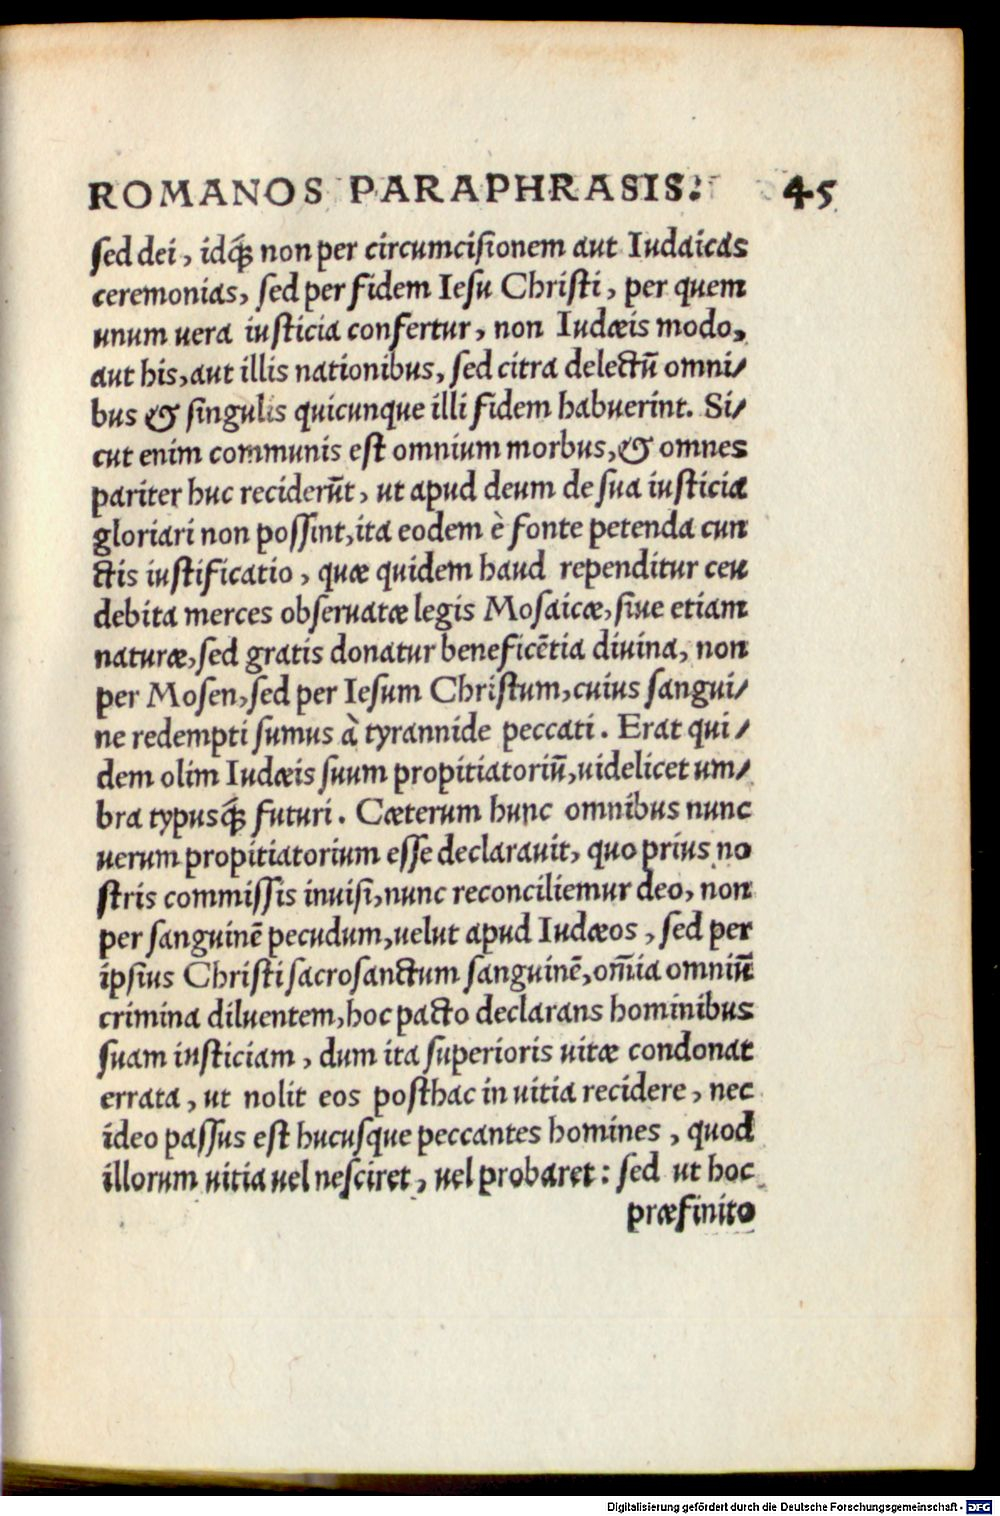 ROMANOS PARAPHRASIS. 45
sed dei, idq́; non per circumcisionem aut Iudaicas
ceremonias, sed per fidem Iesu Christi, per quem
unum uera iusticia confertur, non Iudæis modo,
aut his, aut illis nationibus, sed citra delectū omni/
bus & singulis quicunque illi fidem habuerint. Si/
cut enim communis est omnium morbus, & omnes
pariter huc reciderūt, ut apud deum de sua iusticia
gloriari non possint, ita eodem è fonte petenda cun
ctis iustificatio, quæ quidem haud rependitur ceu
debita merces obseruatæ legis Mosaicæ, siue etiam
naturæ, sed gratis donatur beneficētia diuina, non
per Mosen, sed per Iesum Christum, cuius sangui/
ne redempti sumus à tyrannide peccati. Erat qui/
dem olim Iudæis suum propitiatoriū, uidelicet um/
bra typusq́; futuri. Cæterum hunc omnibus nunc
uerum propitiatorium esse declarauit, quo prius no
stris commissis inuisi, nunc reconciliemur deo, non
per sanguinē pecudum, uelut apud Iudæos, sed per
ipsius Christi sacrosanctum sanguinē, om̄ia omniū
crimina diluentem, hoc pacto declarans hominibus
suam iusticiam, dum ita superioris uitæ condonat
errata, ut nolit eos posthac in uitia recidere, nec
ideo passus est hucusque peccantes homines, quod
illorum uitia uel nesciret, uel probaret: sed ut hoc
præfinito
Digitalisierung gefördert durch die Deutsche Forschungsgemeinschaft - DFG